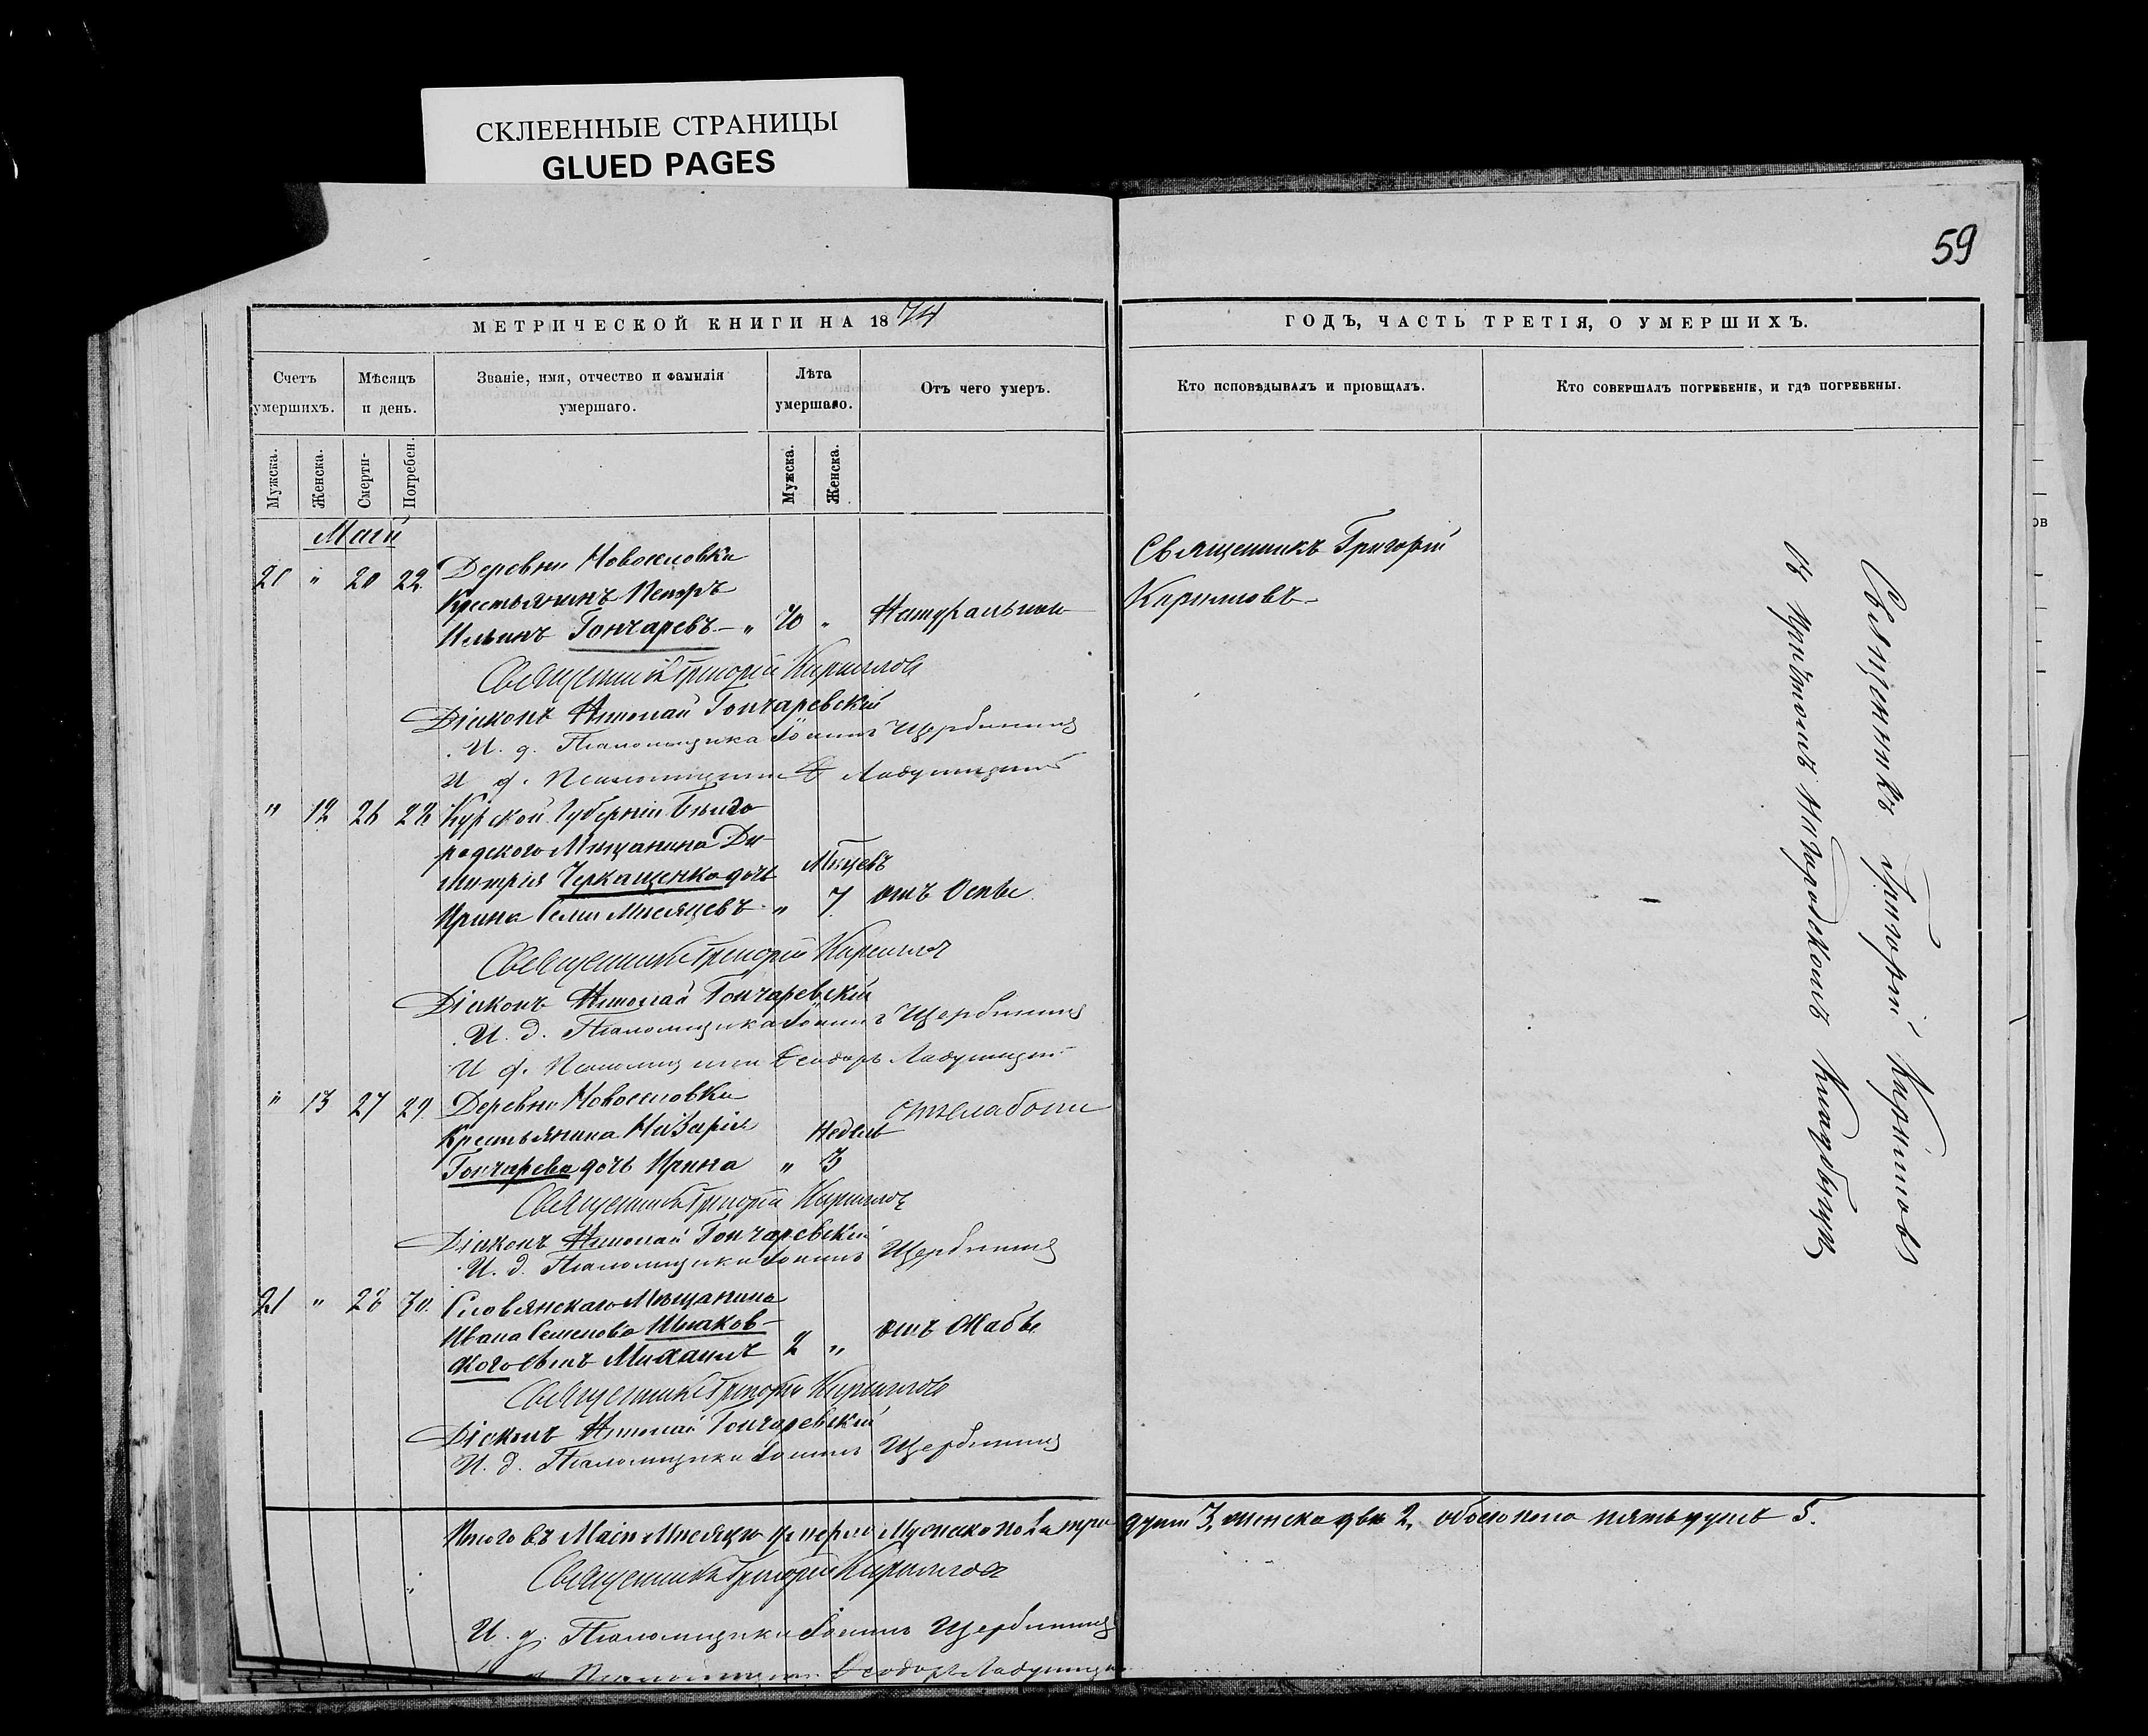 СКЛЕЕННЫЕ СТРАНИЦЫ
GLUED PAGES
59
МЕТРИЧЕСКОЙ КНИГИ НА 1874
ГОДЪ, ЧАСТЬ ТРЕТІЯ, О УМЕРШИХЪ.
Счетъ умершихъ.
Мѣсяцъ и день.
Званіе, имя, отчество и фамилія умершаго.
Лѣта умершаго.
Отъ чего умеръ.
Кто исповѣдывалъ и пріобщалъ.
Кто совершалъ погребеніе, и гдѣ погребены.
Мужска.
Женска.
Смерти-
Погребен.
Мужска.
Женска.
Маій
" 20 22 Деревни Новоселовки
Крестьянинъ Петръ
Ильинъ Гончаревъ – " 70 " Натурально
Священникъ Григорій Кириловъ
Діаконъ Николай Гончаревскій
И. д. Псаломщика Іоаннъ Щербининъ
И. д. Псаломщика
" 12 26 28 Курской Губерніи Бѣлго
родскаго Мѣщанина Ди
митрія Черкащенко дочь Мѣсцевъ
Ирина Семи Мѣсяцевъ " 7 отъ Оспы
Священникъ Григорій Кириловъ
Діаконъ Николай Гончаревскій
И. д. Псаломщика Іоаннъ Щербининъ
И. д. Псаломщика Ѳеодоръ
" 13 27 29 Деревни Новоселовки
Крестьянина Назарія Недель
Гончарева дочь Ирина " 3
Священникъ Григорій Кириловъ
Діаконъ Николай Гончаревскій
И. д. Псаломщика Іоаннъ Щербининъ
21 " 28 30 Словянскаго Мѣщанина
Ивана Семенова
ского сынъ Михаилъ 2 " отъ Жабы
Священникъ Григорій Кириловъ
Діаконъ Николай Гончаревскій
И. д. Псаломщика Іоаннъ Щербининъ
Священникъ Григорій
Кириловъ
Священникъ Григорій Кириловъ
Кладбищѣ
Итого въ Маіи Мѣсяцѣ умерло Мужска пола три душъ 3, женска двѣ 2, обоего пола пять душъ 5.
Священникъ Григорій Кириловъ
И. д. Псаломщика Іоаннъ Щербининъ
Ѳеодоръ